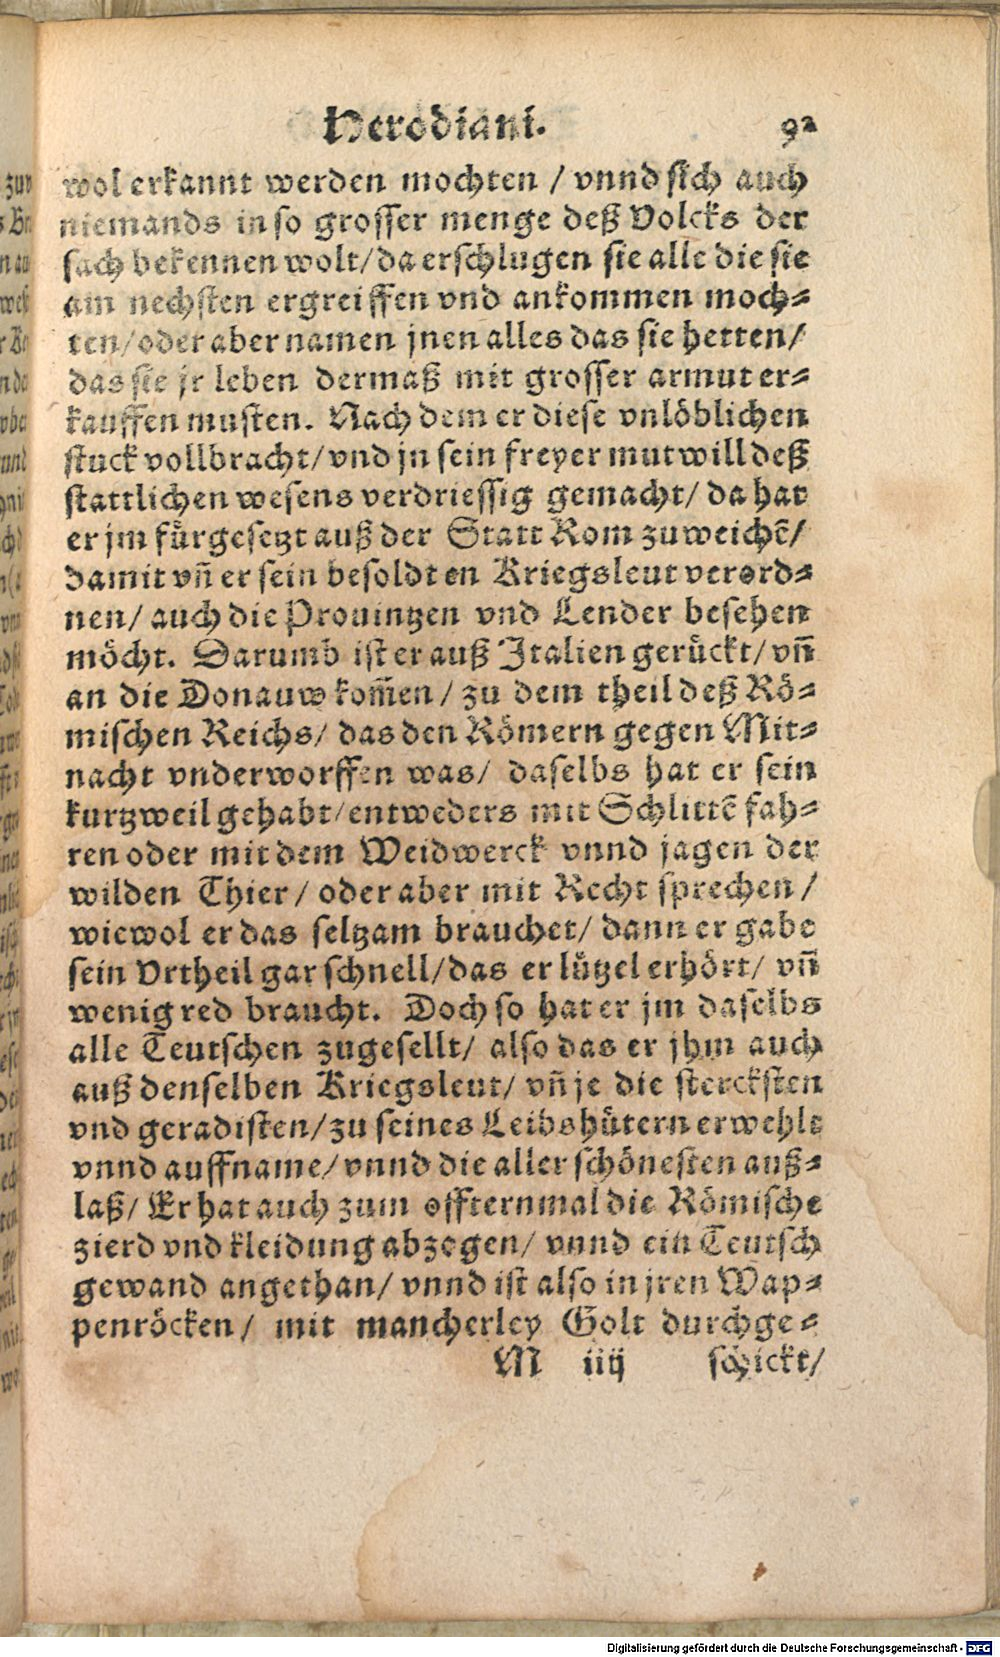 Herodiani. 92
wol erkannt werden mochten / vnnd sich auch
niemands in so grosser menge deß Volcks der
sach bekennen wolt/ da erschlugen sie alle die sie
am nechsten ergreiffen vnd ankommen moch-
ten/ oder aber namen jnen alles das sie hetten/
das sie jr leben dermaß mit grosser armut er-
kauffen musten. Nach dem er diese vnlöblichen
stuck vollbracht/ vnd jn sein freyer mutwill deß
stattlichen wesens verdriessig gemacht/ da hat
er jm fürgesetzt auß der Statt Rom zu weichẽ/
damit vñ er sein besoldten Kriegsleut verord-
nen/ auch die Prouintzen vnd Lender besehen
möcht. Darumb ist er auß Italien gerückt/ vñ
an die Donauw kom̃en/ zu dem theil deß Rö-
mischen Reichs/ das den Römern gegen Mit-
nacht vnderworffen was/ daselbs hat er sein
kurtzweil gehabt/ entweders mit Schlittẽ fah-
ren oder mit dem Weidwerck vnnd jagen der
wilden Thier / oder aber mit Recht sprechen /
wiewol er das seltzam brauchet/ dann er gabe
sein Vrtheil gar schnell/ das er lützel erhört/ vñ
wenig red braucht. Doch so hat er jm daselbs
alle Teutschen zugesellt/ also das er jhm auch
auß denselben Kriegsleut/ vñ je die stercksten
vnd geradisten/ zu seines Leibshütern erwehlt
vnnd auffname/ vnnd die aller schönesten auß-
laß/ Er hat auch zum offternmal die Römische
zierd vnd kleidung abzogen/ vnnd ein Teutsch
gewand angethan/ vnnd ist also in jren Wap-
penröcken/ mit mancherley Golt durchge-
M iiij schickt/
Digitalisierung gefördert durch die Deutsche Forschungsgemeinschaft - DFG